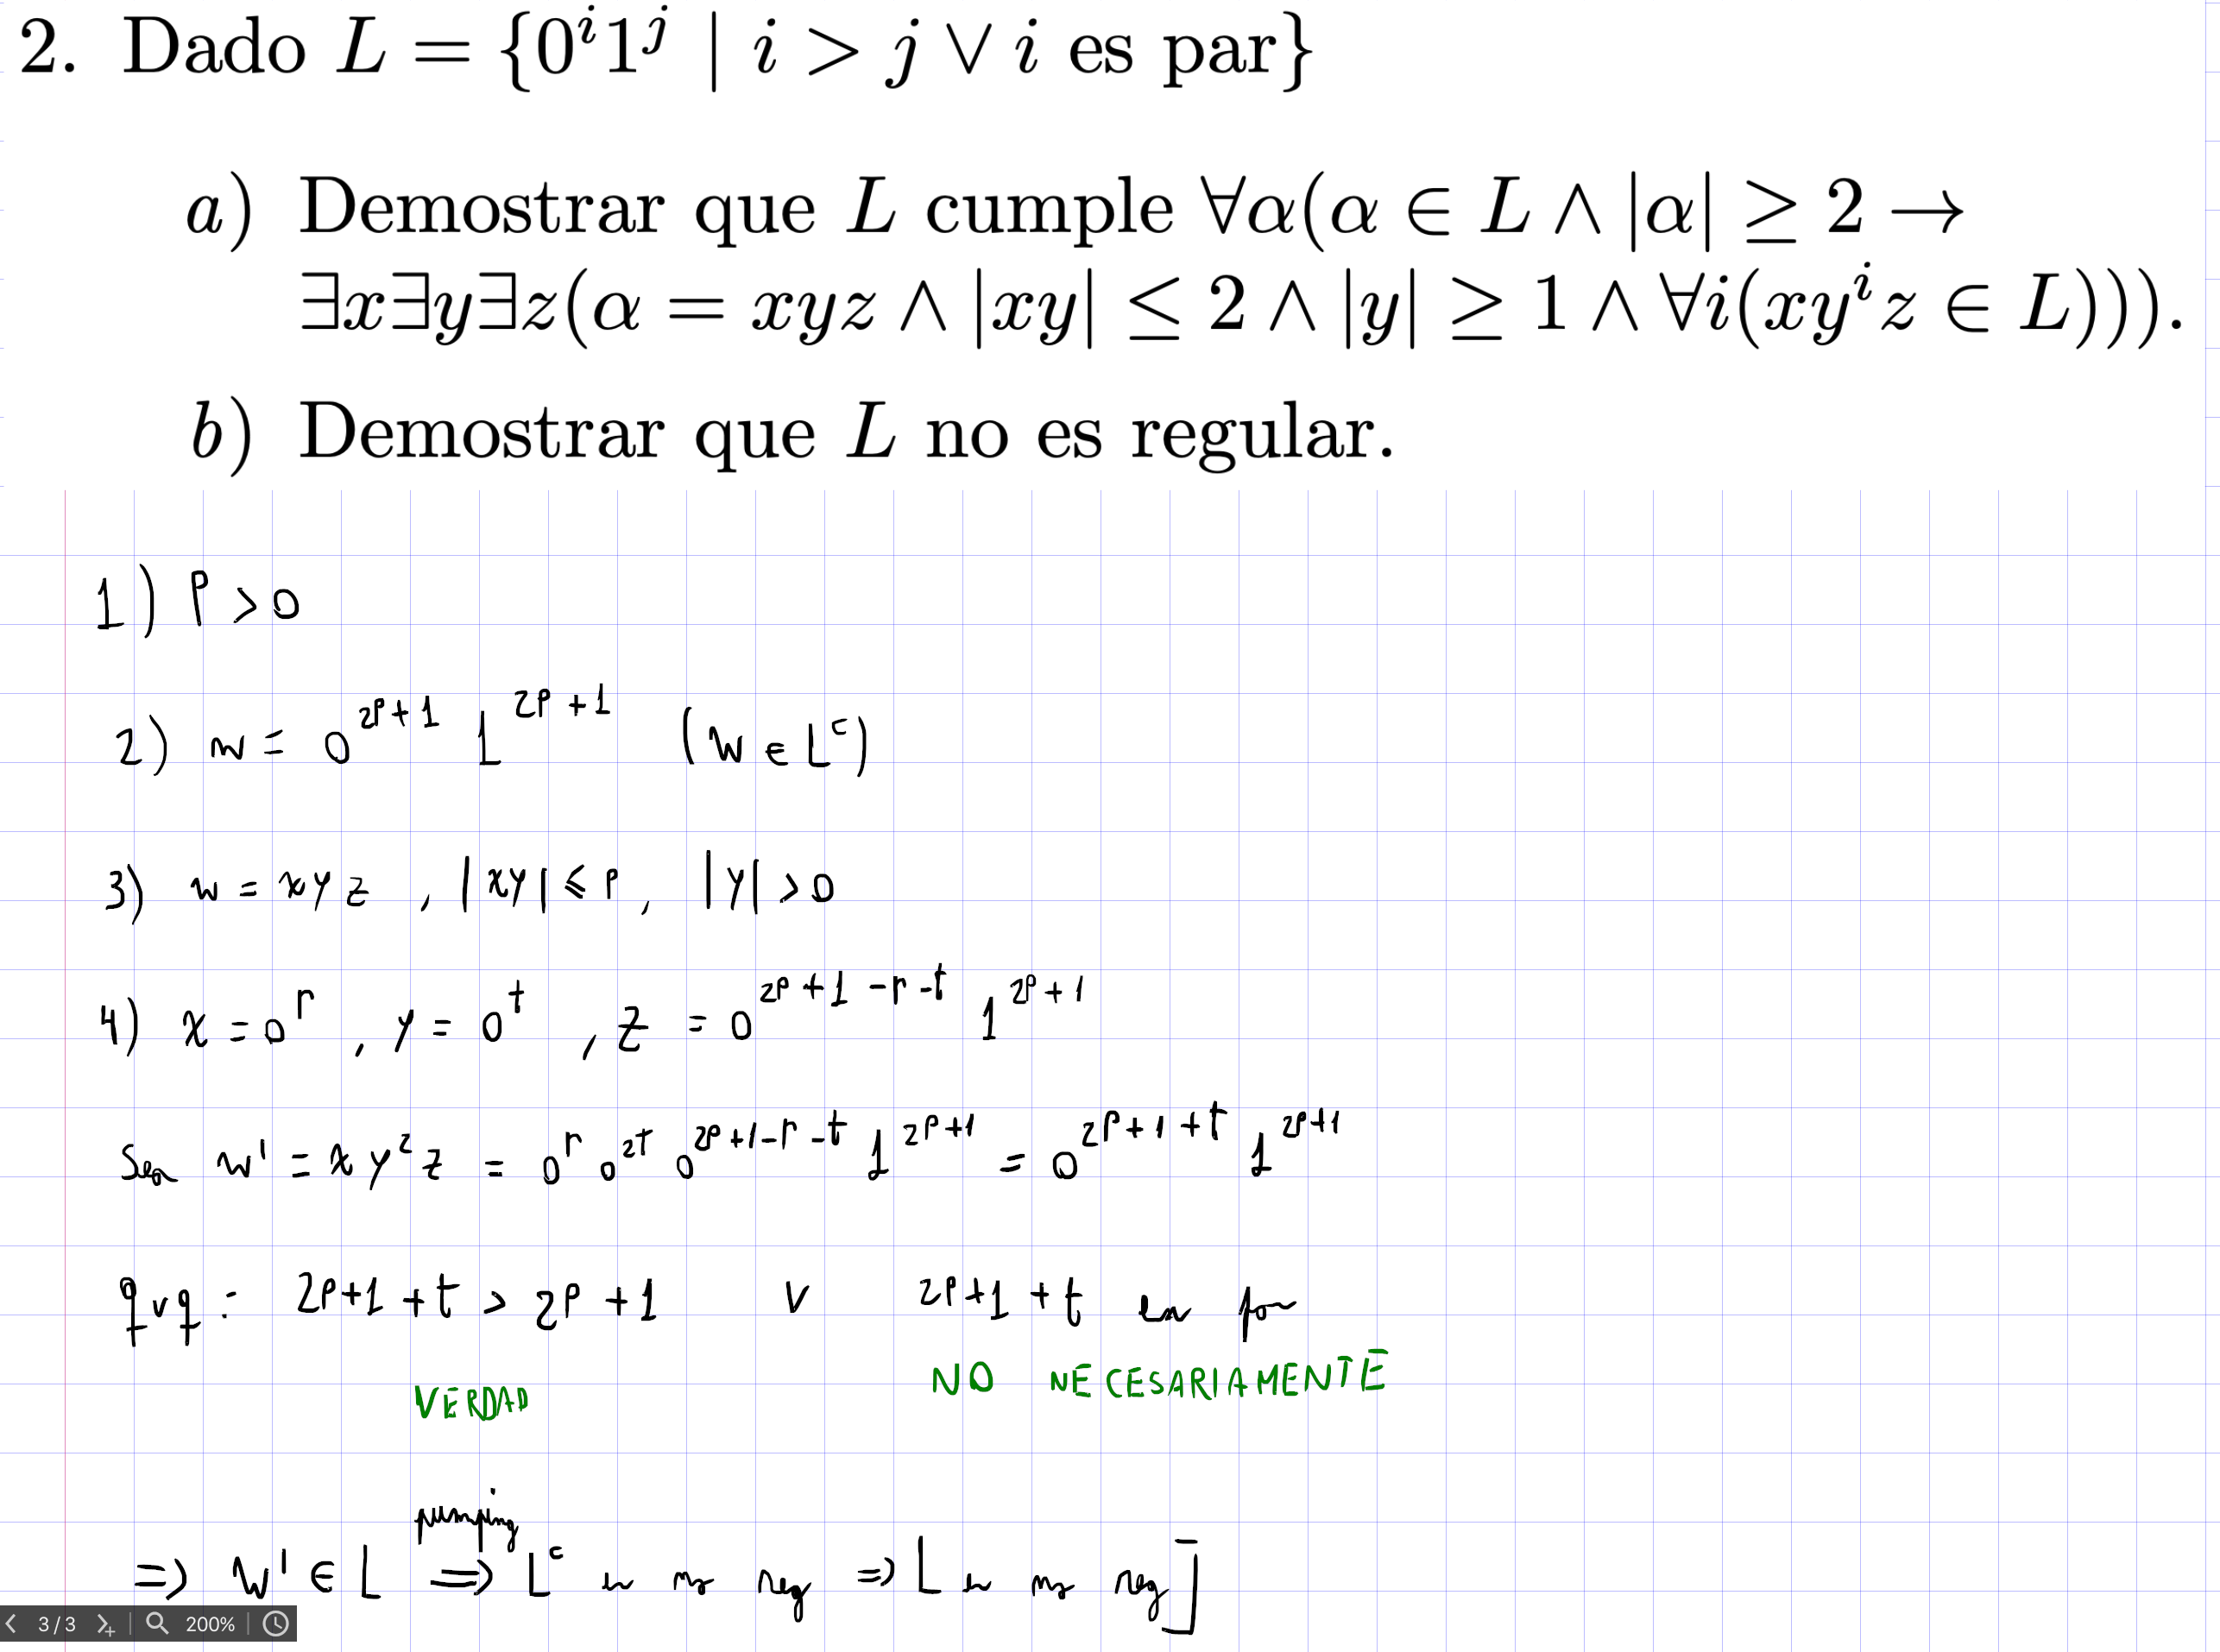 2. Dado L = {0^i 1^j | i > j ∨ i es par}
a) Demostrar que L cumple ∀α(α ∈ L ∧ |α| ≥ 2 →
∃x∃y∃z(α = xyz ∧ |xy| ≤ 2 ∧ |y| ≥ 1 ∧ ∀i(xy^i z ∈ L))).
b) Demostrar que L no es regular.
1) P > 0
2) w = 0^{2P+1} 1^{2P+1} (w ∈ L^c)
3) w = xyz , |xy| ≤ P, |y| > 0
4) x = 0^r , y = 0^t , z = 0^{2P+1-r-t} 1^{2P+1}
Sea w' = xy^2z = 0^r 0^{2t} 0^{2P+1-r-t} 1^{2P+1} = 0^{2P+1+t} 1^{2P+1}
qvq: 2P+1+t > 2P+1 ∨ 2P+1+t es par
VERDAD NO NECESARIAMENTE
pumping
⇒ w' ∈ L ⇒ L^c es no reg ⇒ L es no reg]
3/3 200%